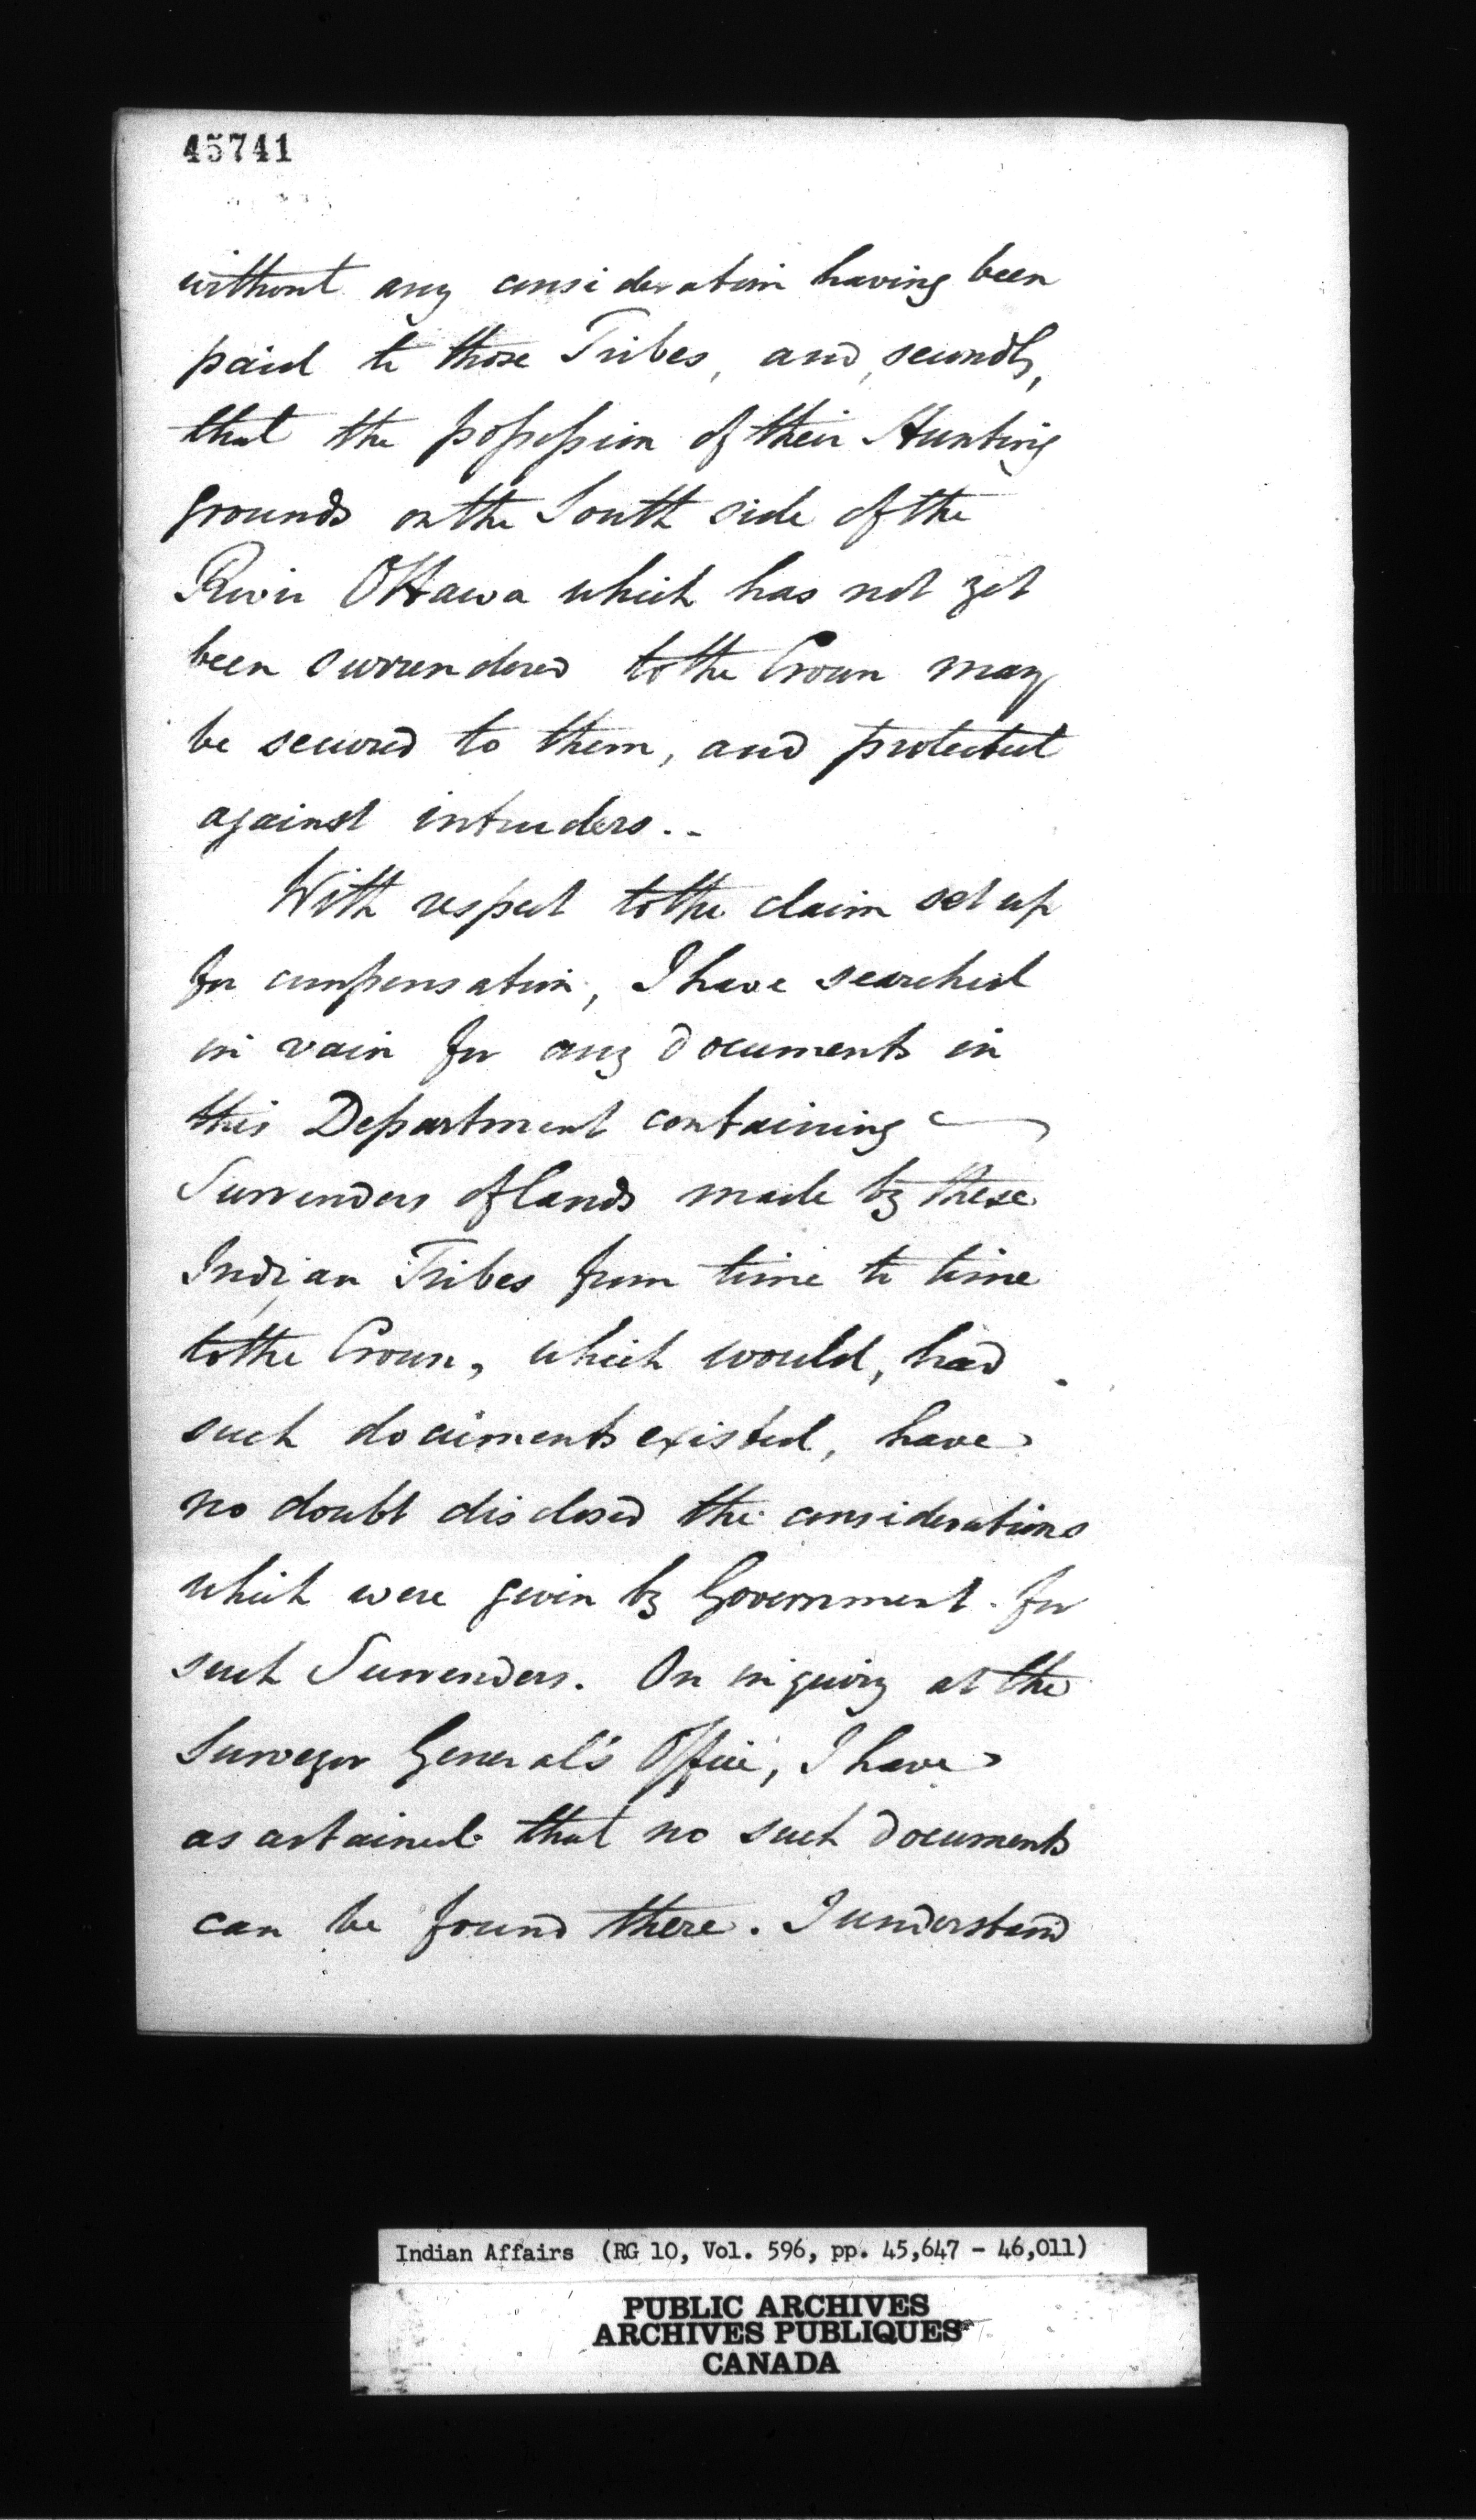 45741
without any consideration having been
paid to those Tribes, and, secondly,
that the possession of their Hunting
grounds on the South side of the
River Ottawa which has not yet
been surrendered to the Crown may
be secured to them, and protected
against intruders..
With respect to the claim set up
for compensation, I have searched
in vain for any documents in
this Department containing
Surrenders of lands made by these
Indian Tribes from time to time
to the Crown, which would, had
such documents existed, have
no doubt disclosed the considerations
which were given by Government for
such Surrenders. On inquiry at the
Surveyor General's Office, I have
ascertained that no such documents
can be found there. I understand
Indian Affairs (RG 10, Vol. 596, pp. 45,647 - 46,011)
PUBLIC ARCHIVES
ARCHIVES PUBLIQUES
CANADA